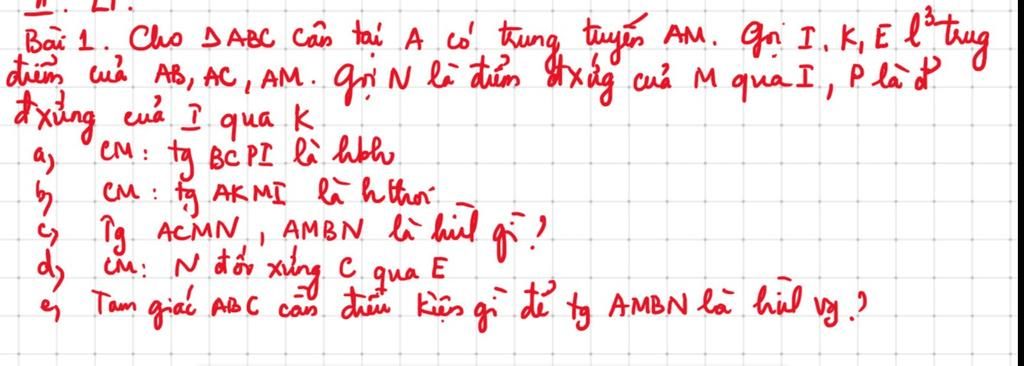 II. LT.
Bài 1. Cho ΔABC cân tại A có trung tuyến AM. Gọi I, K, E l³ trug
điểm của AB, AC, AM. Gọi N là điểm đxứg của M qua I, P là đ²
đxứng của I qua K
a, CM: tg BCPI là hbh
b, CM: tg AKMI là hthoi
c, Tg ACMN, AMBN là hìh gì?
d, CM: N đối xứng C qua E
e, Tam giác ABC cần điều kiện gì để tg AMBN là hìh vg?